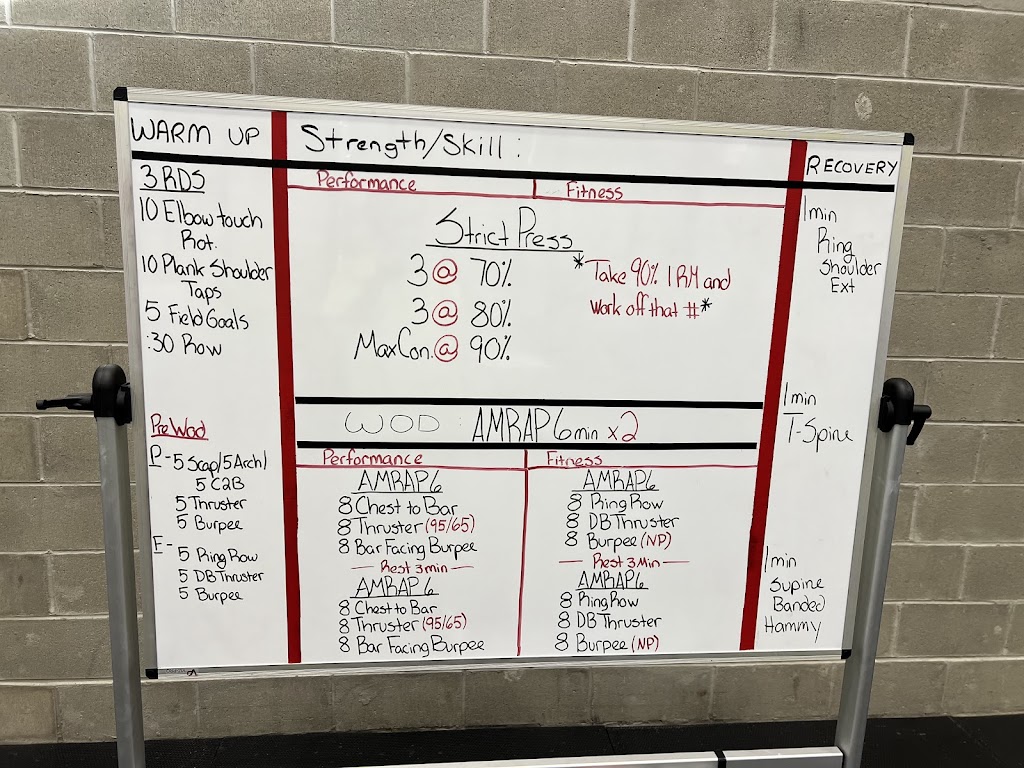 WARM UP
3 RDS
10 Elbow touch
Rot.
10 Plank Shoulder
Taps
5 Field Goals
:30 Row
Pre Wod
P - 5 Scap/5 Arch/
5 C2B
5 Thruster
5 Burpee
F -
5 Ring Row
5 DB Thruster
5 Burpee
Strength/Skill:
Performance
Fitness
Strict Press
3 @ 70%
3 @ 80%
Max Con. @ 90%
*Take 90% 1RM and
work off that #*
WOD : AMRAP 6 min x2
Performance
AMRAP 6
8 Chest to Bar
8 Thruster (95/65)
8 Bar Facing Burpee
— Rest 3 min —
AMRAP 6
8 Chest to Bar
8 Thruster (95/65)
8 Bar Facing Burpee
Fitness
AMRAP 6
8 Ring Row
8 DB Thruster
8 Burpee (NP)
— Rest 3 Min —
AMRAP 6
8 Ring Row
8 DB Thruster
8 Burpee (NP)
RECOVERY
1 min
Ring
Shoulder
Ext
1 min
T-Spine
1 min
Supine
Banded
Hammy